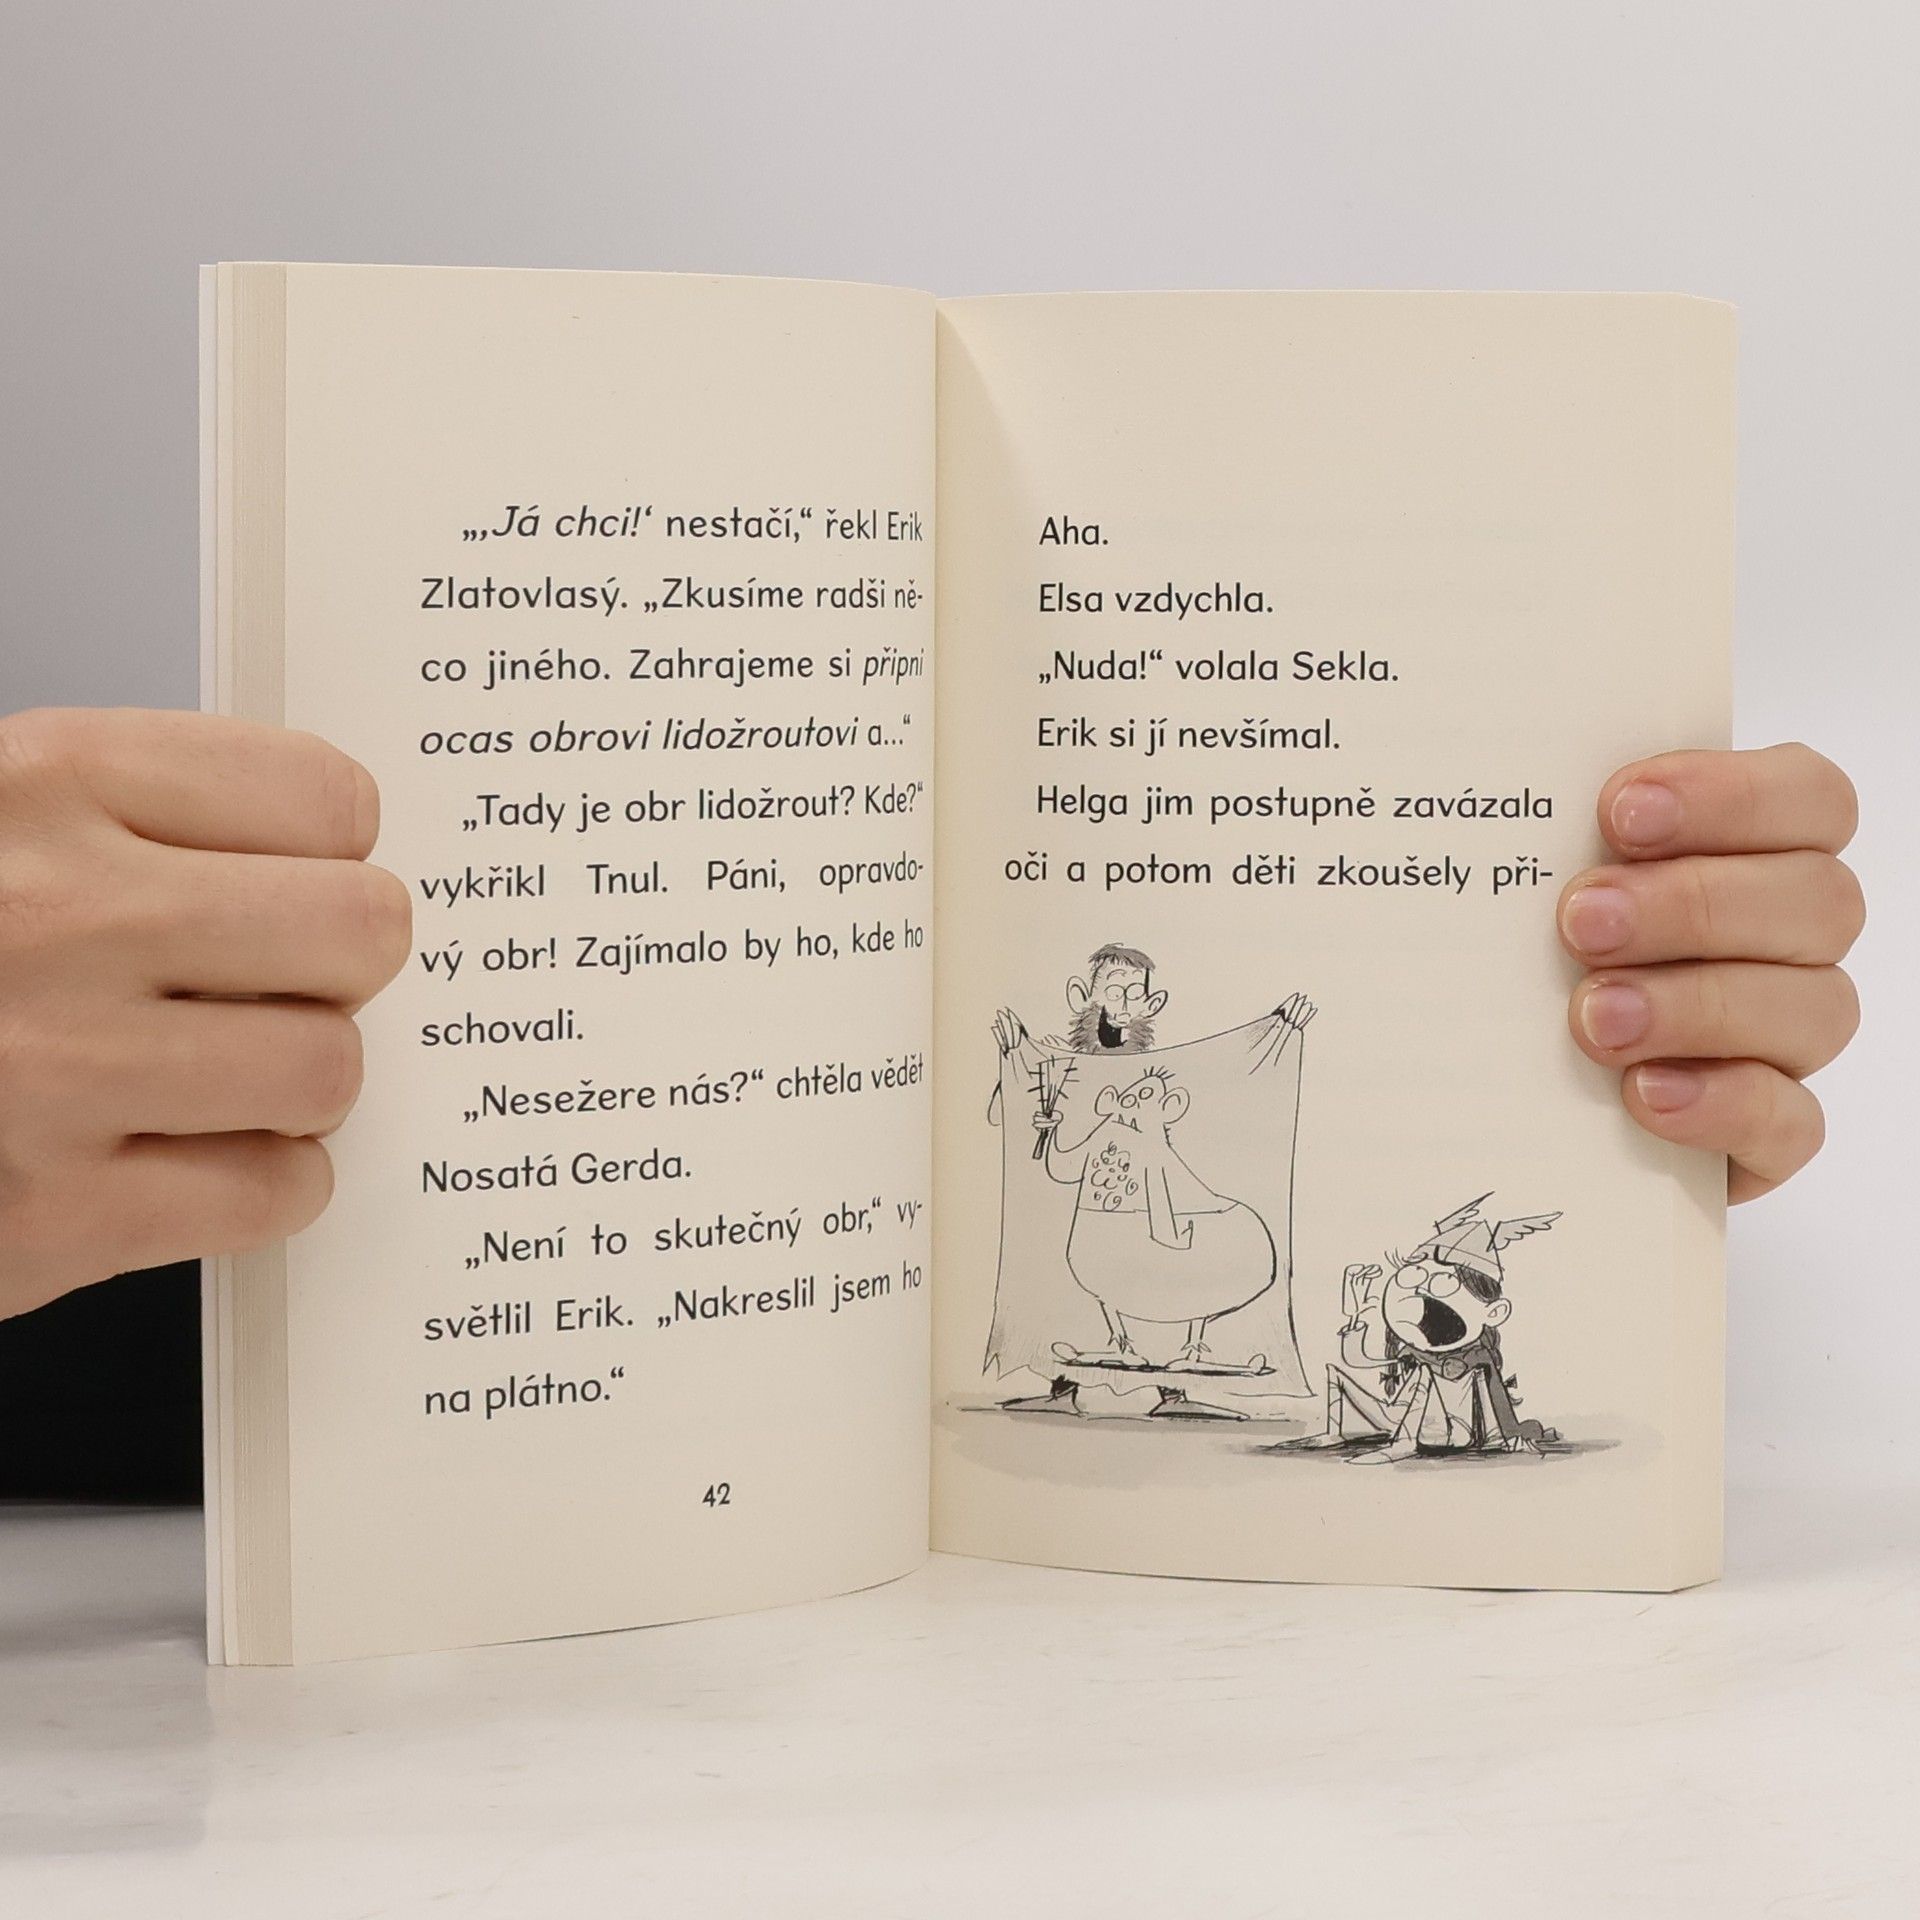 „‚Já chci!‘ nestačí,“ řekl Erik
Zlatovlasý. „Zkusíme radši ně-
co jiného. Zahrajeme si připni
ocas obrovi lidožroutovi a...“
„Tady je obr lidožrout? Kde?“
vykřikl Tnul. Páni, opravdo-
vý obr! Zajímalo by ho, kde ho
schovali.
„Nesežere nás?“ chtěla vědět
Nosatá Gerda.
„Není to skutečný obr,“ vy-
světlil Erik. „Nakreslil jsem ho
na plátno.“
42
Aha.
Elsa vzdychla.
„Nuda!“ volala Sekla.
Erik si jí nevšímal.
Helga jim postupně zavázala
oči a potom děti zkoušely při-